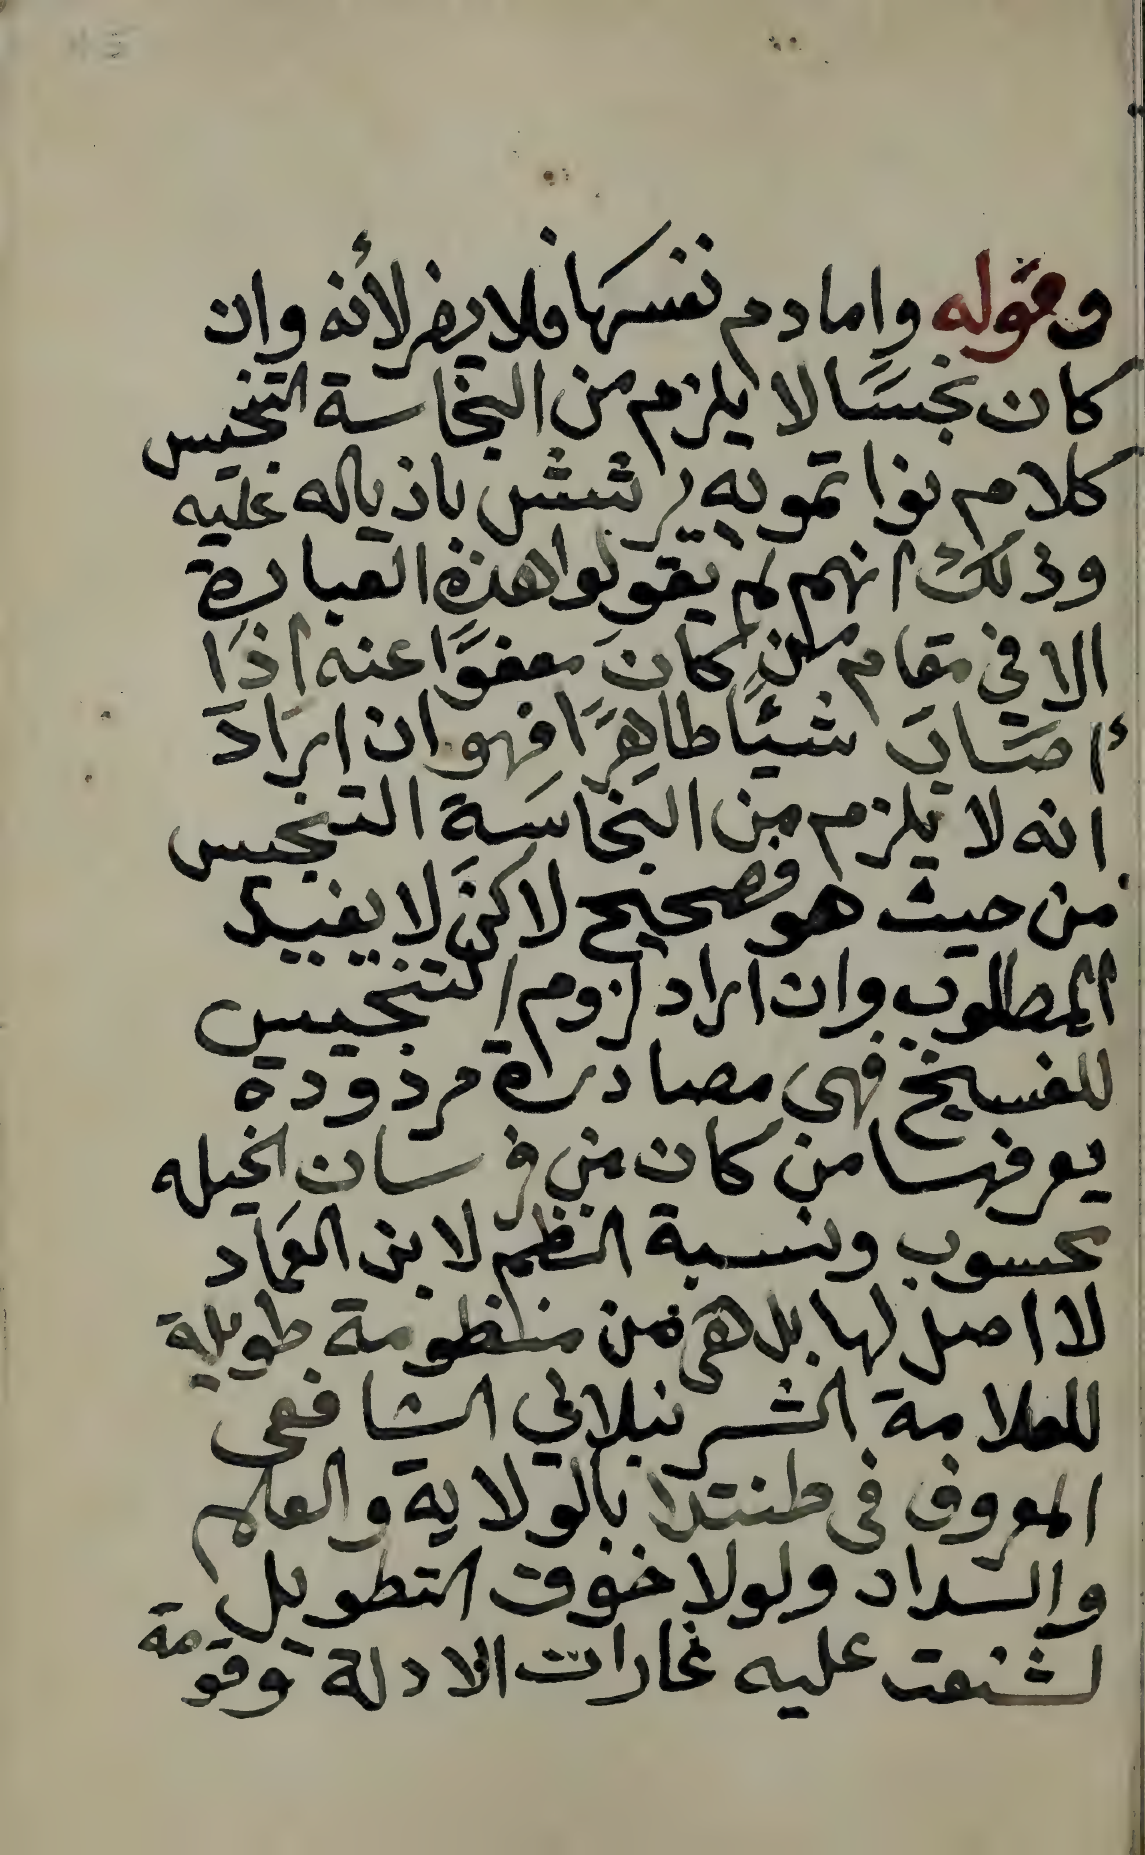 وقوله وامادم نفسها فلا يضر لأنه وان
كان نجسًا لا يلزم من النجاسة التنجيس
كلام نوا تمويه يرشش باذياله عليه
وذلك انهم لم يقولوا هذه العبارة
الا في مقام من كان معفوًا عنه اذا
أصاب شيئًا طاهرًا فهو ان اراد
انه لا يلزم من النجاسة التنجيس
من حيث هو فصحيح لاكن لا يفيد
المطلوب وان اراد لزوم التنجيس
للفسيخ فهى مصادرة مرذودة
يعرفها من كان من فرسان الخيله
محسوب ونسبة النظم لابن العماد
لا اصل لها بل هى من منظومة طويلة
للعلامة الشرنبلالي الشافعى
المعروف فى طنتدا بالولاية والعلم
والسداد ولولا خوف التطويل
لشنعت عليه غارات الادلة وقومة